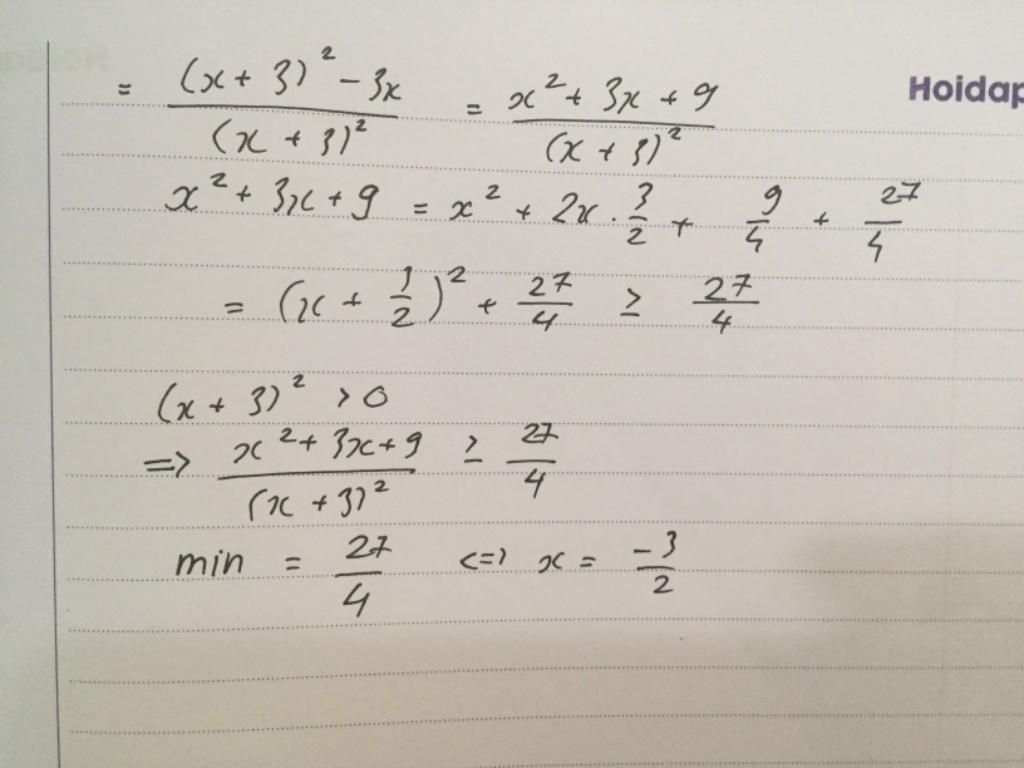 Hoidap
= \frac{(x+3)^2 - 3x}{(x+3)^2} = \frac{x^2 + 3x + 9}{(x+3)^2}
x^2 + 3x + 9 = x^2 + 2x \cdot \frac{3}{2} + \frac{9}{4} + \frac{27}{4}
= (x + \frac{3}{2})^2 + \frac{27}{4} ≥ \frac{27}{4}
(x+3)^2 > 0
=> \frac{x^2 + 3x + 9}{(x+3)^2} ≥ \frac{27}{4}
min = \frac{27}{4} <=> x = \frac{-3}{2}